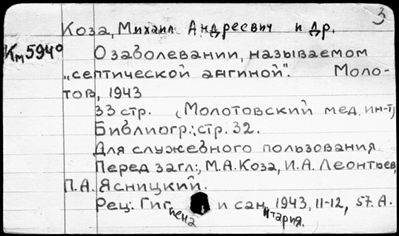 3
Коза, Михаил Андреевич и др.
Км594⁰ О заболевании, называемом
„септической ангиной". Моло-
тов, 1943
33 стр. (Молотовский мед. ин-т)
Библиогр.: стр. 32.
Для служебного пользования.
Перед загл.: М.А. Коза, И.А. Леонтьев,
П.А. Ясницкий.
Рец.: Гигиена и санитария, 1943, 11-12, 57. А.